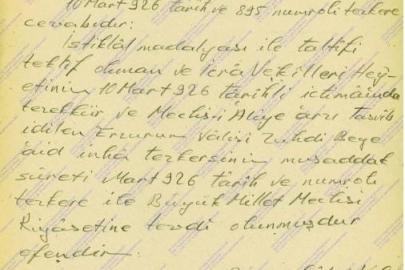 10 Mart 926 tarih ve 895 numrolı tezkere
cevabıdır:
İstiklâl madalyası ile taltifi
teklif olunan ve İcrâ Vekilleri Hey-
etinin 10 Mart 926 târihli ictimâında
tezekkür ve Meclisi Âliye arzı tasvib
idilen Erzurum Vâlisi Zühdi Beye
âid inhâ tezkersinin musaddak
sûreti Mart 926 târih ve numrolı
tezkere ile Büyük Millet Meclisi
Riyâsetine tevdi olunmuşdur
efendim.